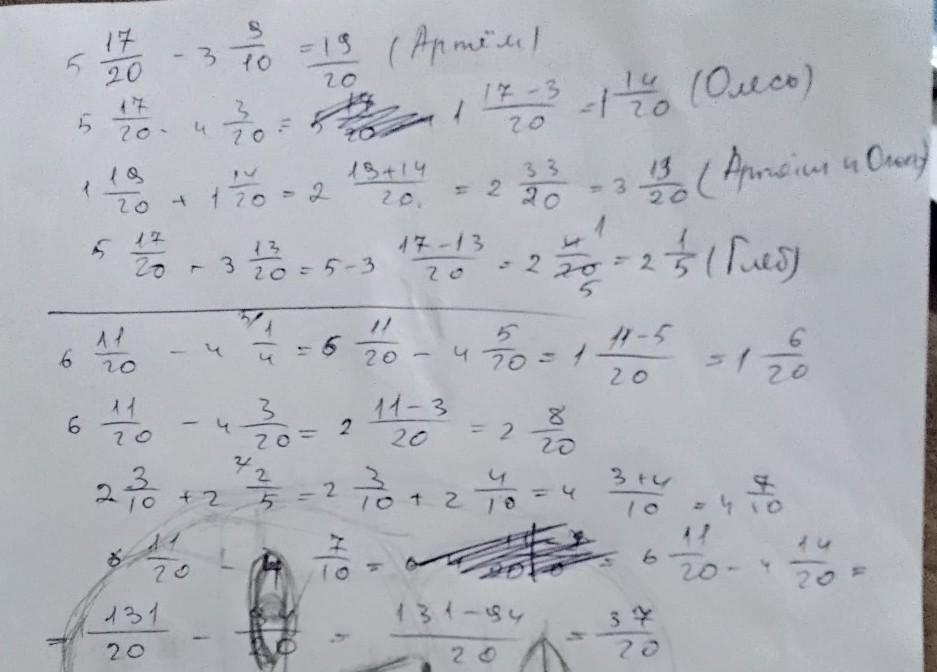 5 17/20 - 3 9/10 = 19/20 (Артём)
5 17/20 - 4 3/20 = 1 (17-3)/20 = 1 14/20 (Олесь)
1 19/20 + 1 14/20 = 2 (19+14)/20. = 2 33/20 = 3 13/20 (Артём и Олесь)
5 17/20 - 3 13/20 = 5-3 (17-13)/20 = 2 4/20 1/5 = 2 1/5 (Глеб)
6 11/20 - 4 1/4 = 6 11/20 - 4 5/20 = 1 (11-5)/20 = 1 6/20
6 11/20 - 4 3/20 = 2 (11-3)/20 = 2 8/20
2 3/10 + 2 2/5 = 2 3/10 + 2 4/10 = 4 (3+4)/10 = 4 7/10
6 11/20 - 4 7/10 = = 6 11/20 - 4 14/20 =
= 131/20 - 94/20 = (131-94)/20 = 37/20